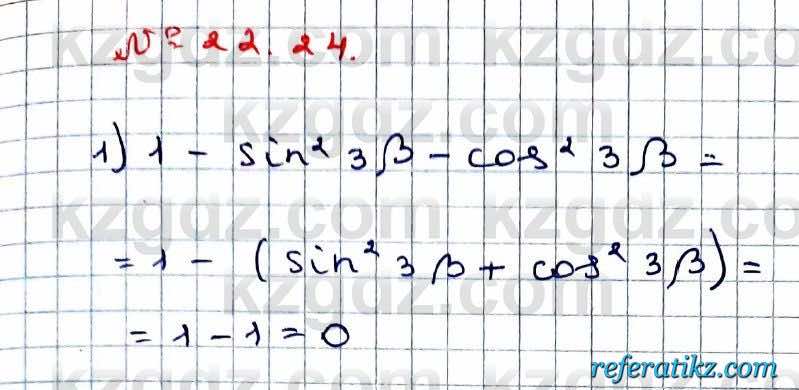 № 22.24.
1) 1 - sin² 3β - cos² 3β =
= 1 - (sin² 3β + cos² 3β) =
= 1 - 1 = 0
kzgdz.com
kzgdz.com
kzgdz.com
kzgdz.com
referatikz.com